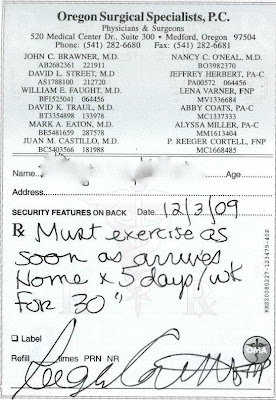 Oregon Surgical Specialists, P.C.
Physicians & Surgeons
520 Medical Center Dr., Suite 300 • Medford, Oregon 97504
Phone: (541) 282-6680 Fax: (541) 282-6681
JOHN C. BRAWNER, M.D. NANCY C. O'NEAL, M.D.
AB2682361 221911 BO3982370
DAVID L. STREET, M.D. JEFFREY HERBERT, PA-C
AS1788100 212720 PA00572 064456
WILLIAM E. FAUGHT, M.D. LENA VARNER, FNP
BF1525041 064456 MV1336684
DAVID K. TRAUL, M.D. ABBY COATS, PA-C
BT3354898 133978 MC1333301
MARK A. EATON, M.D. ALYSSA MILLER, PA-C
BE5481659 287578 MM1613404
JUAN M. CASTILLO, M.D. P. REEGER CORTELL, FNP
BC5403566 181988 MC1668485
Name
Address
SECURITY FEATURES ON BACK Date 12/3/09
Rx Must exercise as
soon as arrives
Home x 5 days/wk
FOR 30"
Label
Refill times PRN NR